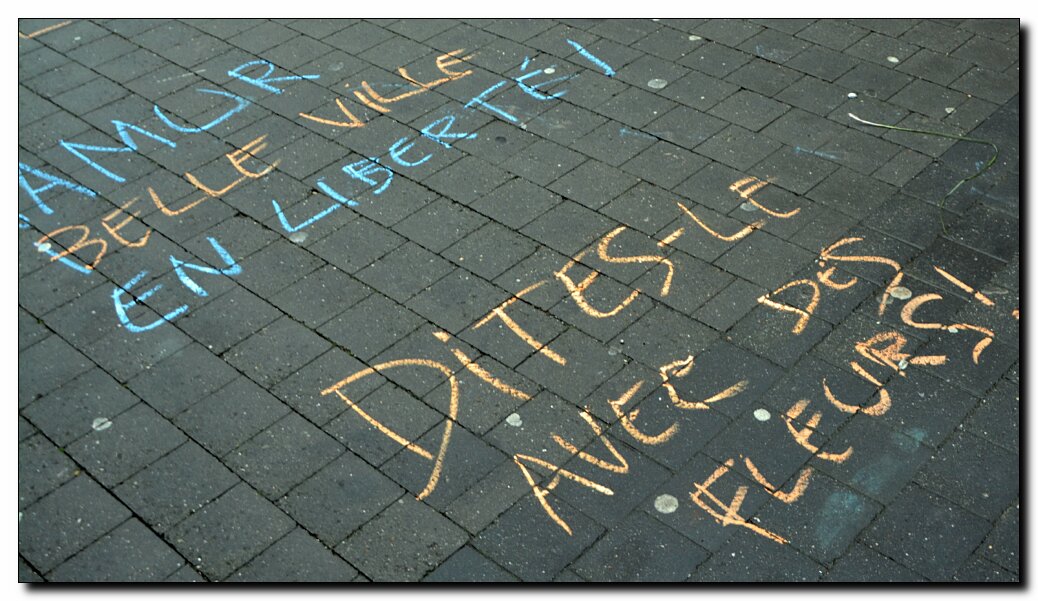 NAMUR
BELLE VILLE
EN LIBERTÉ!
DITES-LE
AVEC DES
FLEURS!